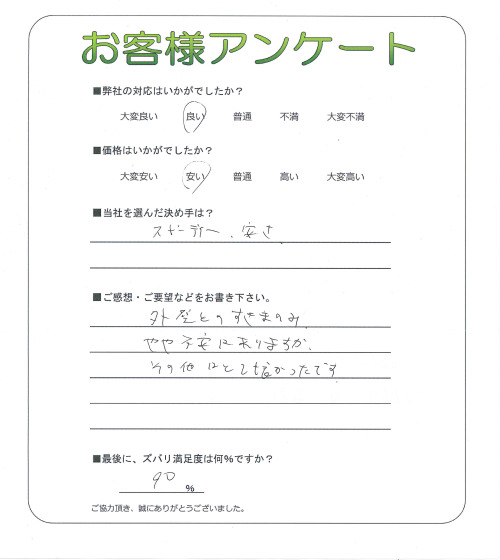 お客様アンケート
■弊社の対応はいかがでしたか？
大変良い 良い 普通 不満 大変不満
■価格はいかがでしたか？
大変安い 安い 普通 高い 大変高い
■当社を選んだ決め手は？
スピーディー、安さ
■ご感想・ご要望などをお書き下さい。
外壁とのすきまのみ、
やや不安になりますが、
その他はとても良かったです
■最後に、ズバリ満足度は何％ですか？
90 ％
ご協力頂き、誠にありがとうございました。